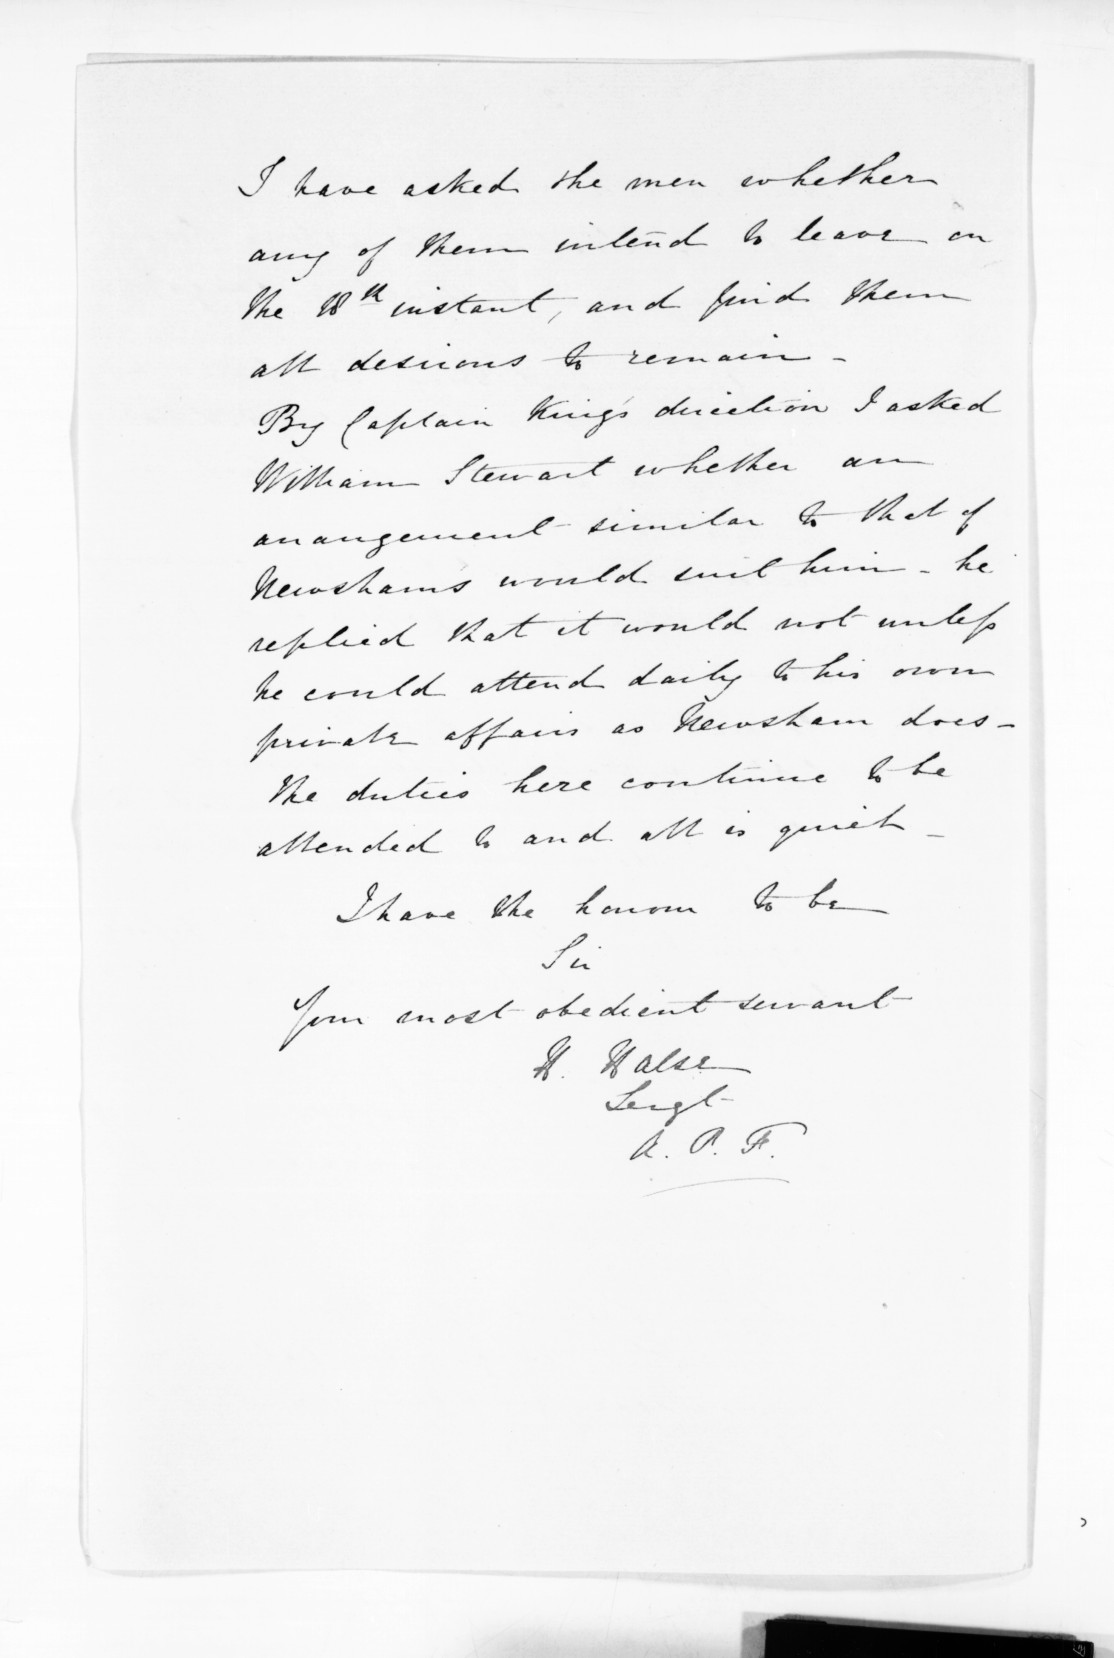 I have asked the men whether
any of them intend to leave on
the 18th instant, and find them
all desirous to remain -
By Captain King's direction I asked
William Stewart whether an
arrangement similar to that of
Newsham's would suit him - he
replied that it would not unless
he could attend daily to his own
private affairs as Newsham does -
The duties here continue to be
attended to and all is quiet -
I have the honour to be
Sir
Your most obedient servant
H. Halse
Sergt
A. P. F.